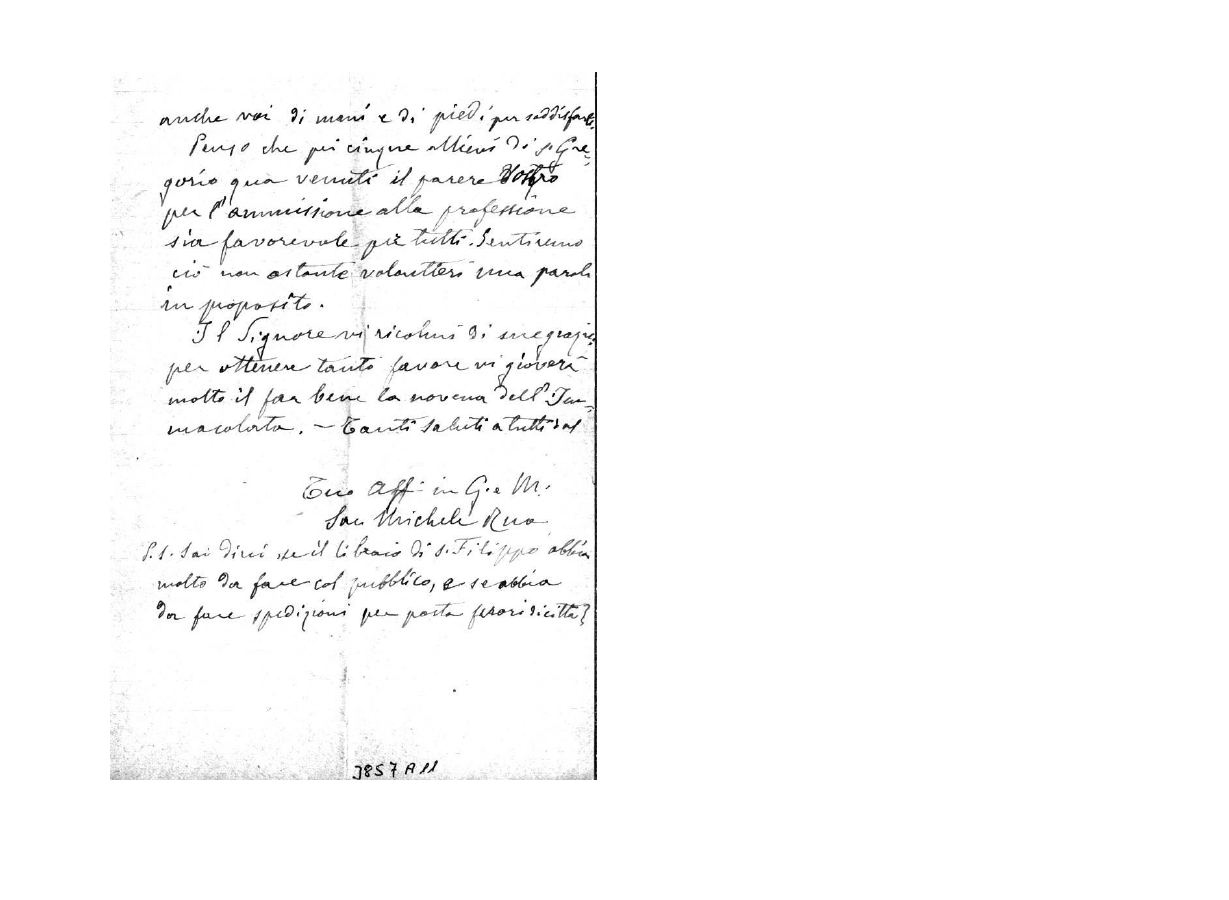 anche voi di mani e di piedi per soddisfarli.
Penso che pei cinque allievi di s. Gre-
gorio qua venuti il parere Vostro
per l'ammissione alla professione
sia favorevole per tutti. Sentiremo
ciò non ostante volontieri una parola
in proposito.
Il Signore vi ricolmi di sue grazie;
per ottenere tanto favore vi gioverà
molto il far bene la novena dell'Im-
macolata. - Tanti saluti a tutti dal
Tuo Aff. in G. e M.
Sac. Michele Rua
P.S. Sai dirci se il libraio di s. Filippo abbia
molto da fare col pubblico, e se abbia
da fare spedizioni per posta fuori di città?
3857 A 11